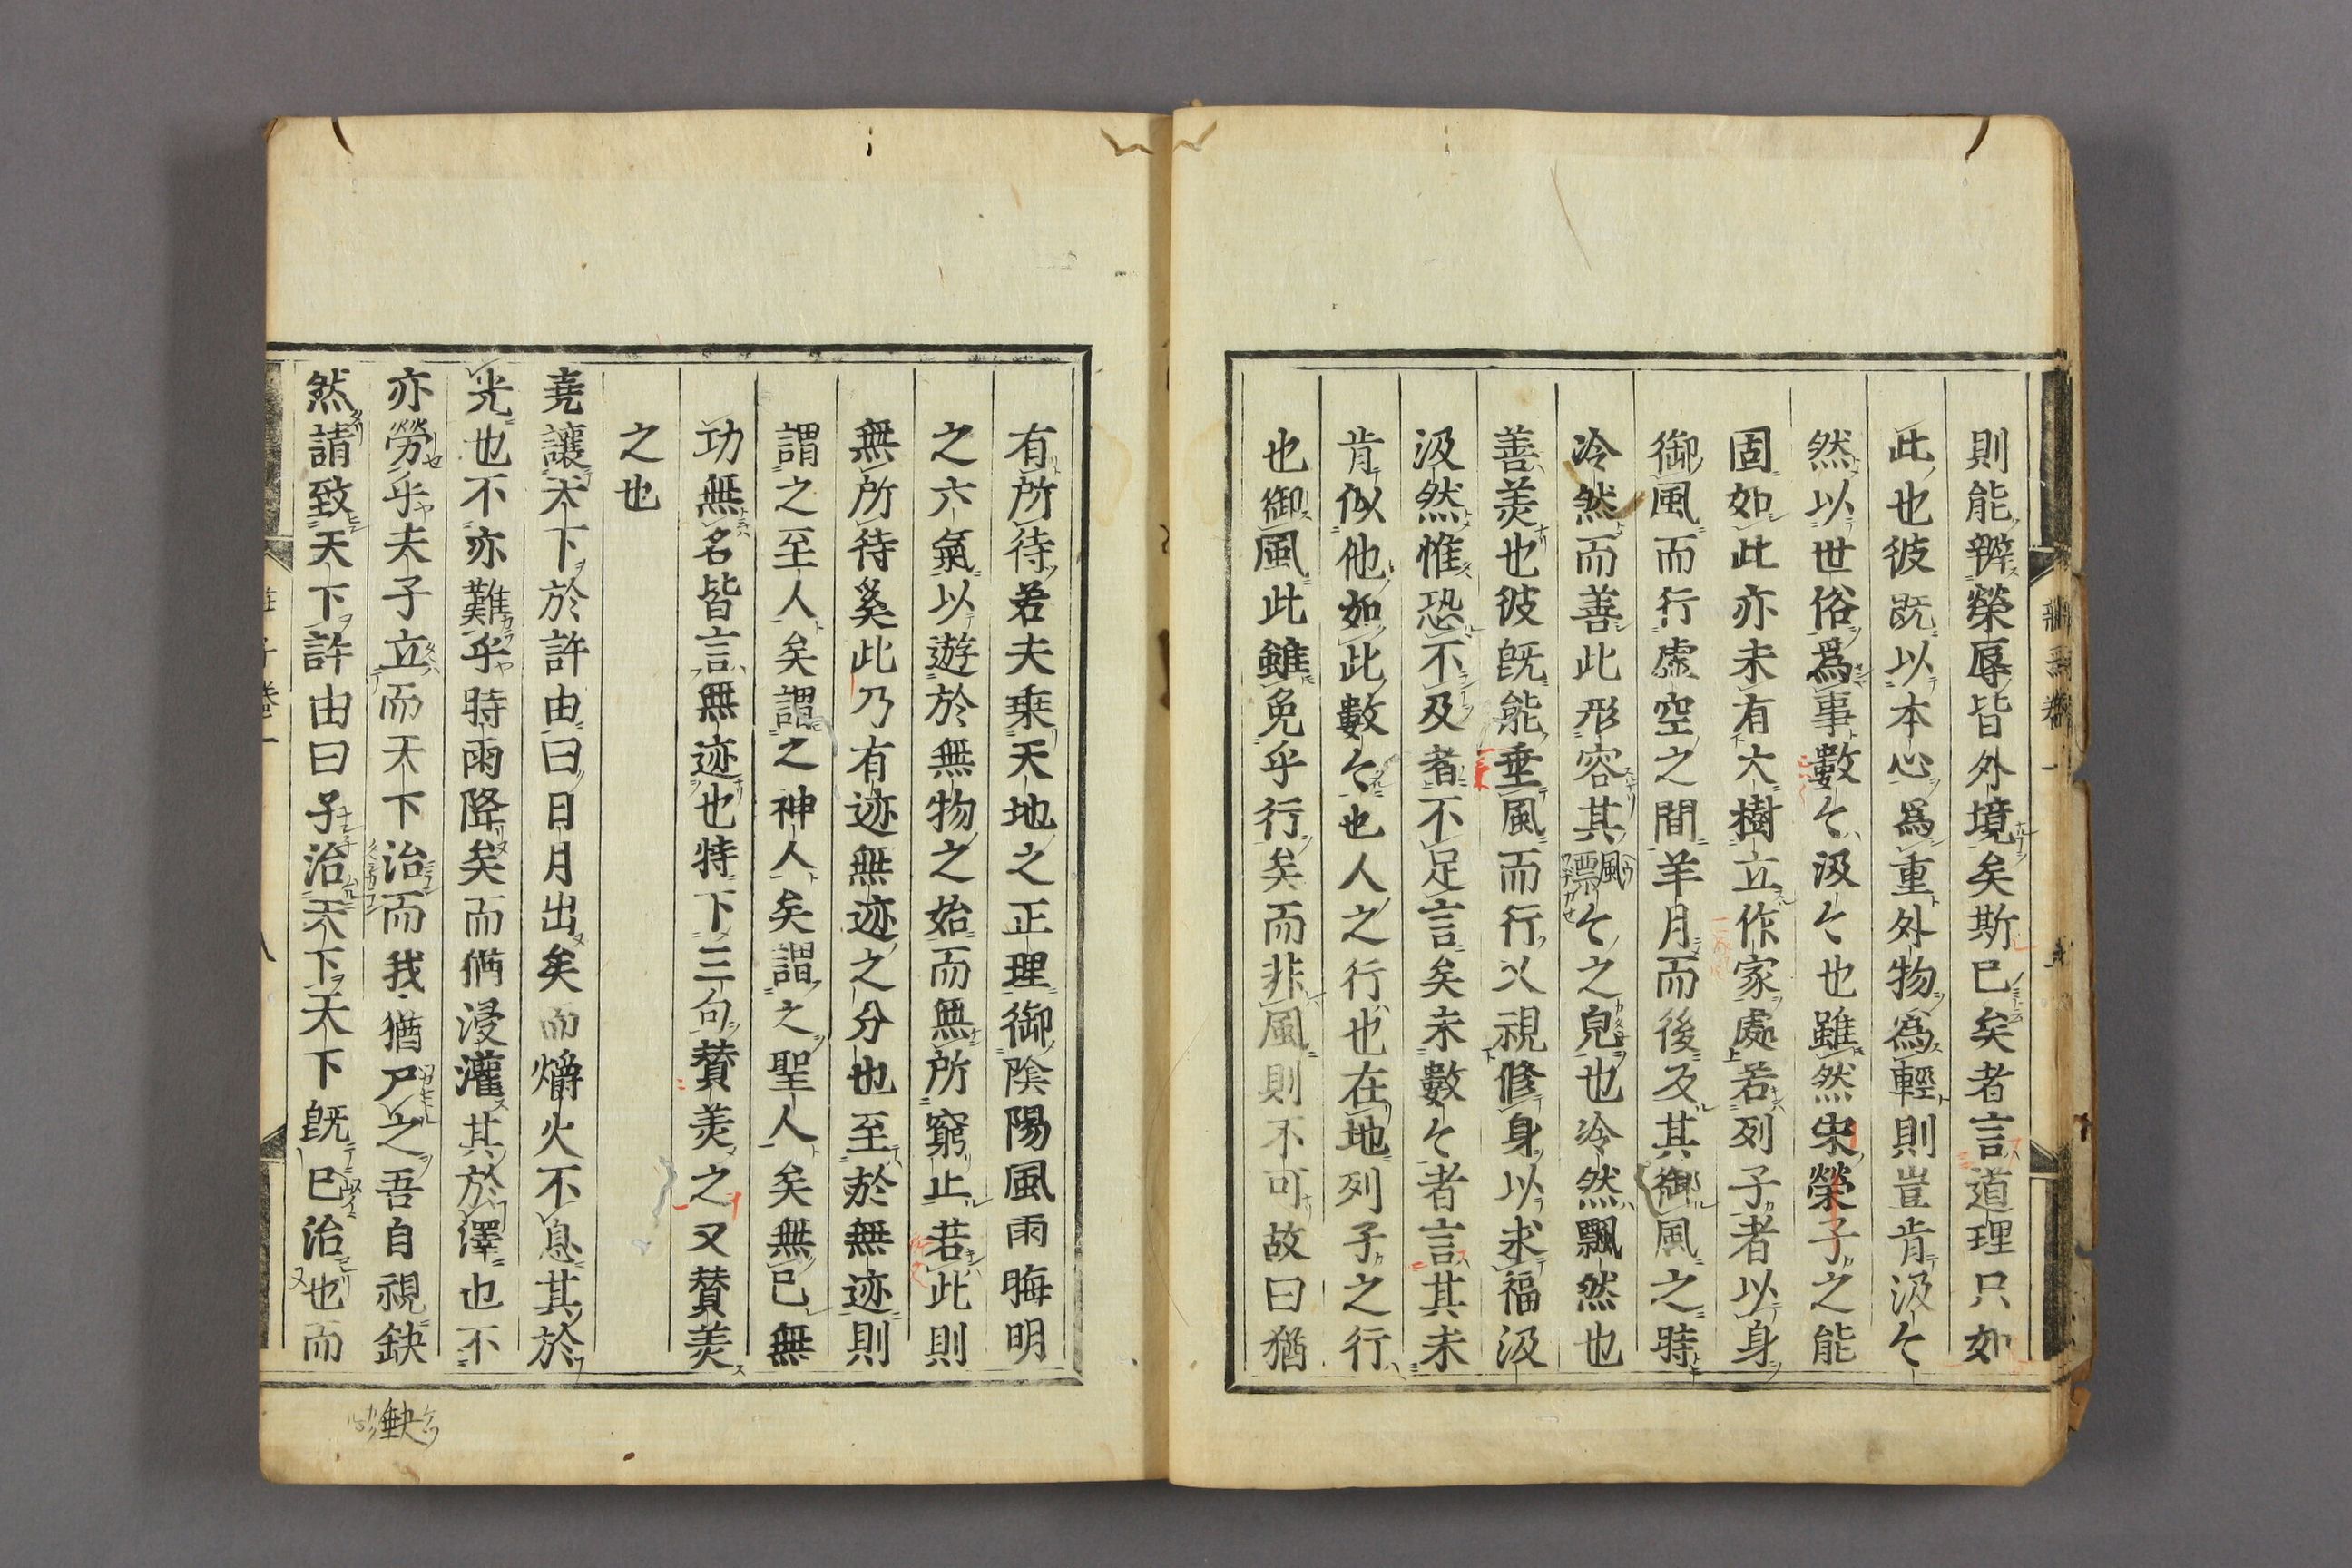 則能辨榮辱皆外境矣斯已矣者言道理只如
此也彼既以本心爲重外物爲輕則豈肯汲々
然以世俗爲事數々汲々也雖然宋榮子之能
固如此亦未有大樹立作家處若列子者以身
御風而行虛空之間羊月而後及其御風之時
冷然而善此形容其飄々之皃也冷然飄然也
善羙也彼旣能垂風而行以視修身以求福汲
汲然惟恐不及者不足言矣未數々者言其未
肯似他如此數々也人之行也在地列子之行
也御風此雖免乎行矣而非風則不可故曰猶
有所待若夫乗天地之正理御陰陽風雨晦明
之六氣以遊於無物之始而無所窮止若此則
無所待奚此乃有迹無迹之分也至於無迹則
謂之至人矣謂之神人矣謂之聖人矣無已無
功無名皆言無迹也特下三句贊羙之又贊羙
之也
堯讓天下於許由曰日月出矣而爝火不息其於
光也不亦難乎時雨降矣而猶浸灌其於澤也不
亦勞乎夫子立而天下治而我猶尸之吾自視缺
然請致天下許由曰子治天下天下旣已治也而
莊子卷一
八
缺